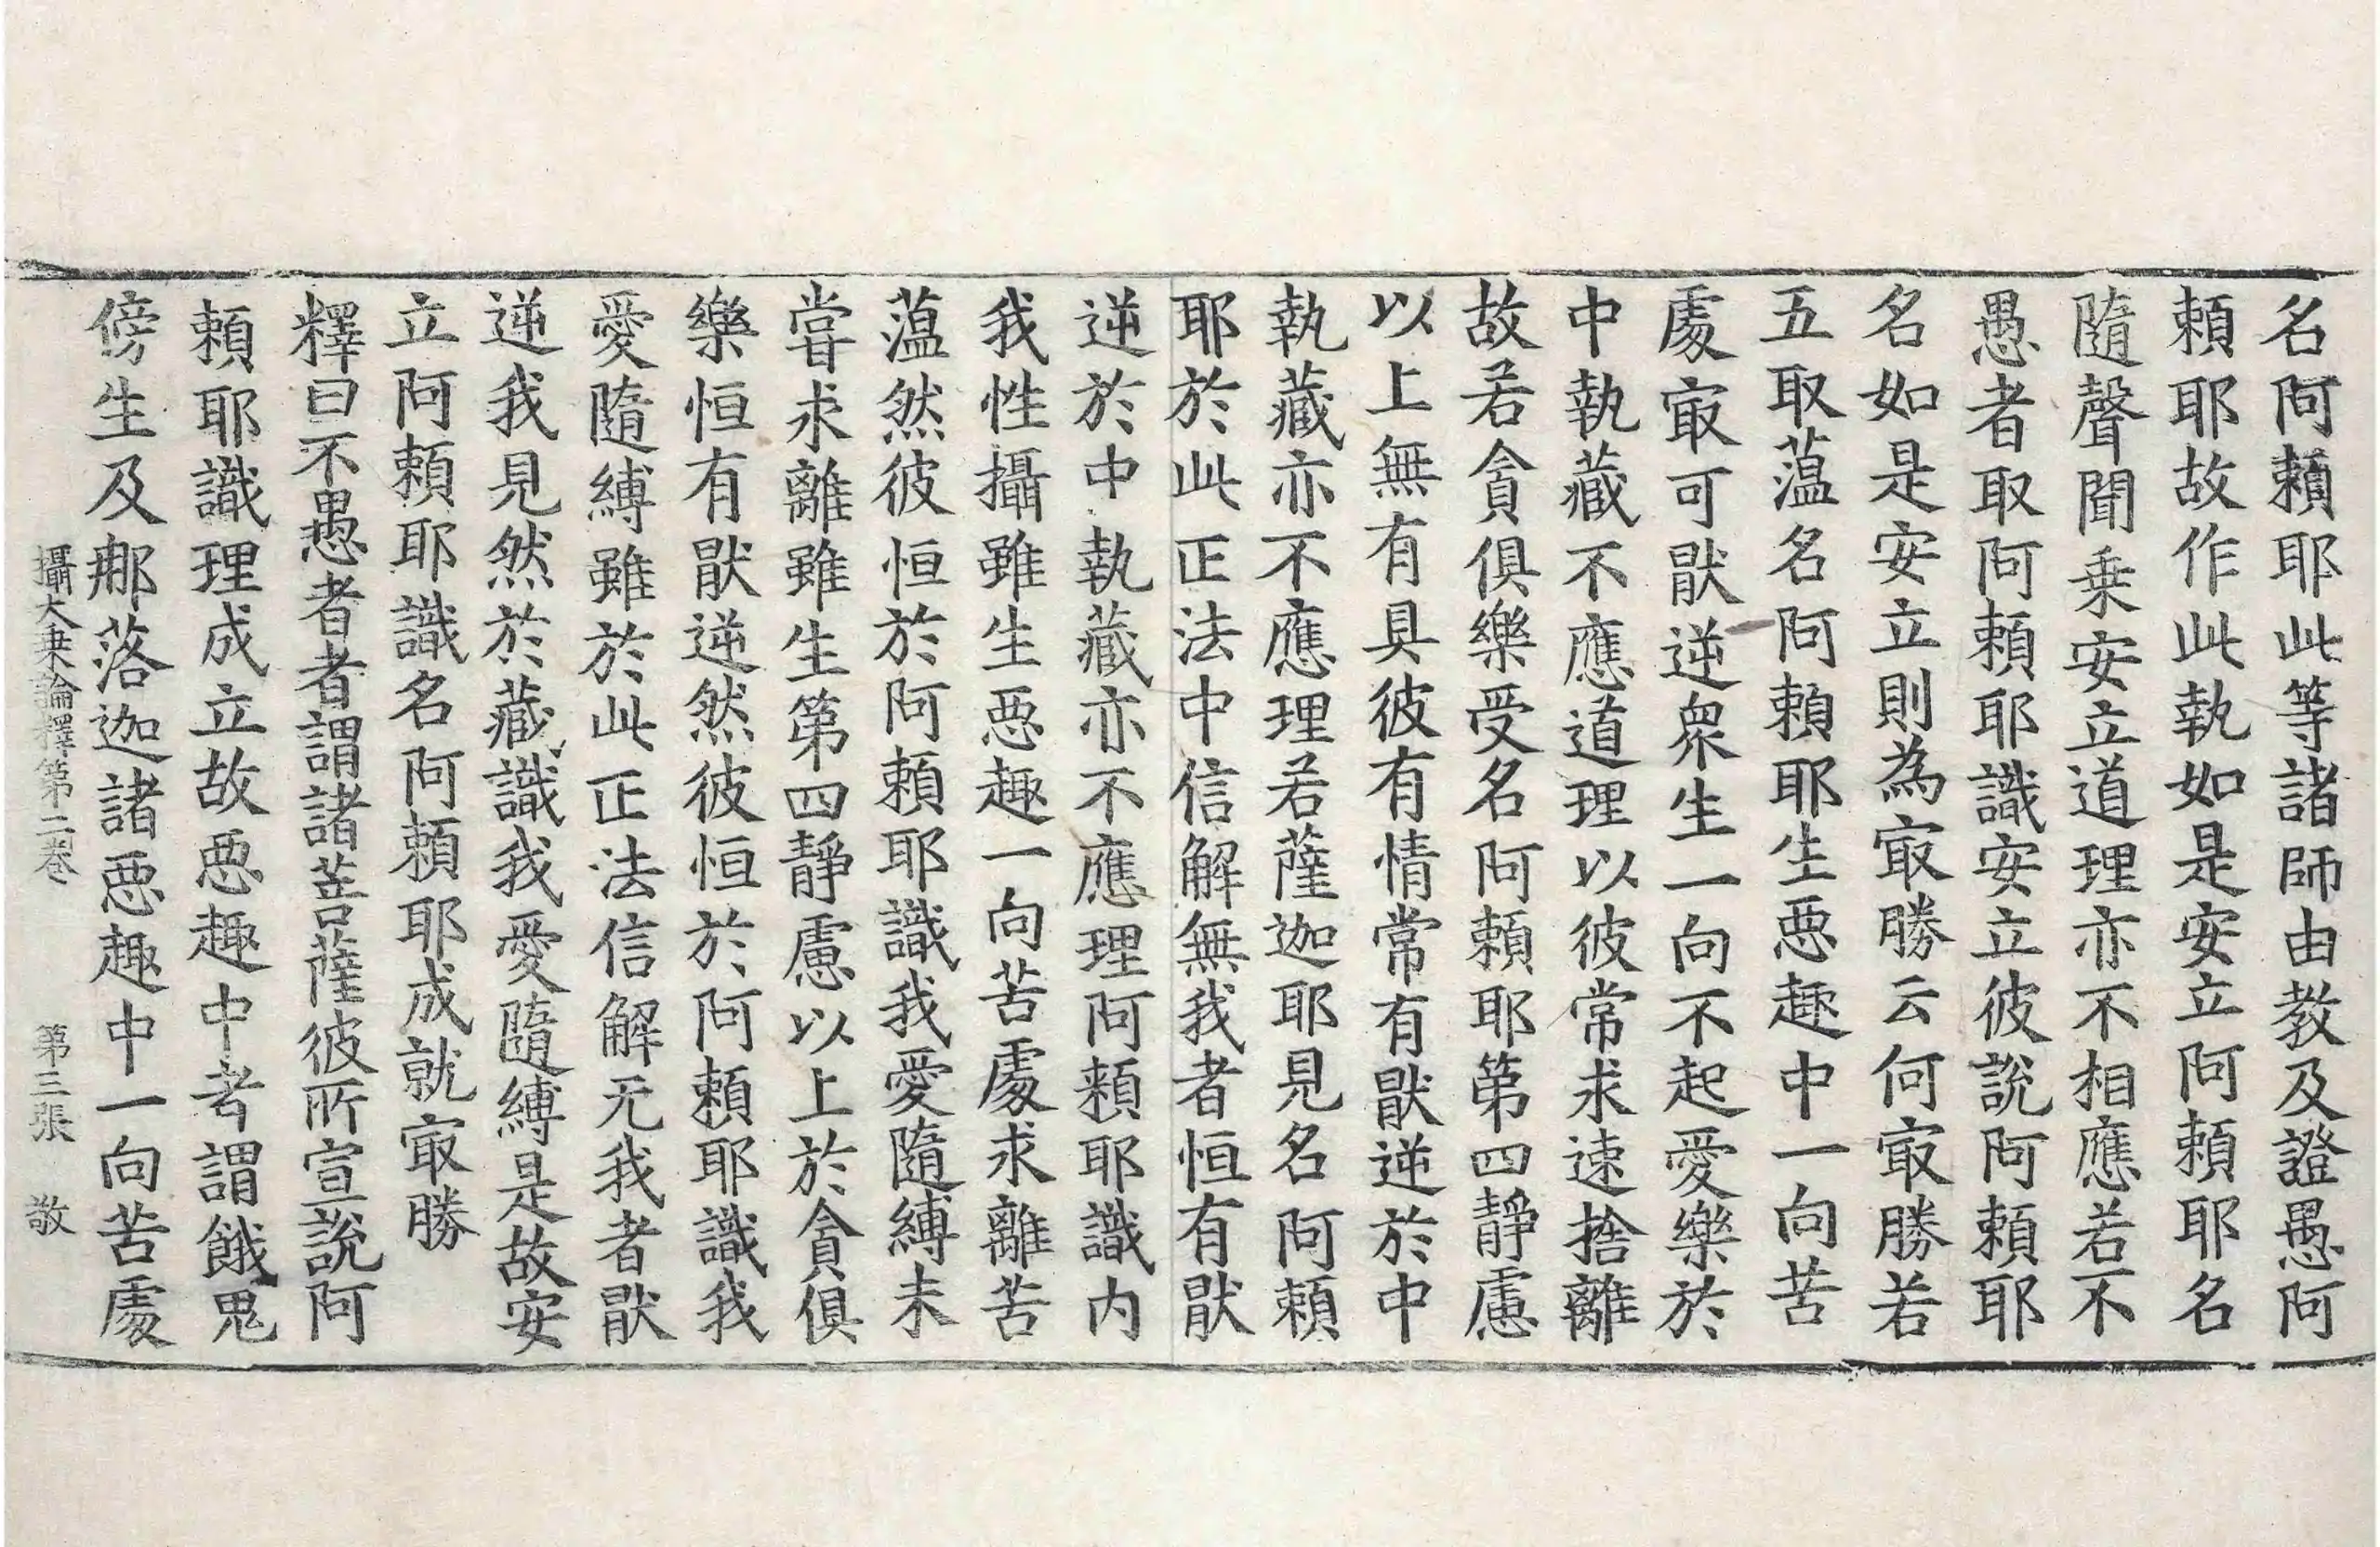 名阿賴耶此等諸師由教及證愚阿
賴耶故作此執如是安立阿賴耶名
隨聲聞乗安立道理亦不相應若不
愚者取阿賴耶識安立彼說阿賴耶
名如是安立則為㝡勝云何㝡勝若
五取蕰名阿賴耶生惡趣中一向苦
處㝡可猒逆衆生一向不起愛樂於
中執藏不應道理以彼常求速捨離
故若貪俱樂受名阿賴耶第四靜慮
以上無有具彼有情常有猒逆於中
執藏亦不應理若薩迦耶見名阿賴
耶於此正法中信解無我者恒有猒
逆於中執藏亦不應理阿賴耶識内
我性攝雖生惡趣一向苦處求離苦
蕰然彼恒於阿賴耶識我愛隨縛未
嘗求離雖生第四靜慮以上於貪俱
樂恒有猒逆然彼恒於阿賴耶識我
愛隨縛雖於此正法信解无我者猒
逆我見然於藏識我愛隨縛是故安
立阿賴耶識名阿賴耶成就㝡勝
釋曰不愚者者謂諸菩薩彼所宣說阿
賴耶識理成立故惡趣中者謂餓鬼
傍生及那落迦諸惡趣中一向苦處
攝大乗論釋第二卷 第三張 敬